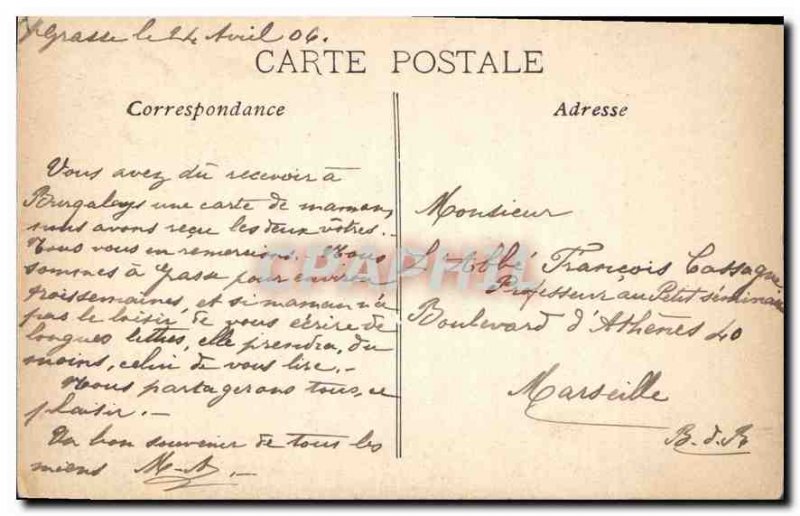 Grasse le 24 Avril 06.
CARTE POSTALE
Correspondance
Adresse
Vous avez dû recevoir à
une carte de maman,
nous avons reçu les deux vôtres. -
Nous vous en remercions. - Nous
sommes à Grasse pour environ
trois semaines, et si maman n'a
pas le loisir de vous écrire de
longues lettres, elle prendra, du
moins, celui de vous lire. -
Nous partagerons tous, ce
plaisir. -
Un bon souvenir de tous les
miens M-A. -
Monsieur
l'Abbé François Cassagne
Professeur au Petit séminaire
Boulevard d'Athènes 40
Marseille
B. d. R.
CPAPHIL